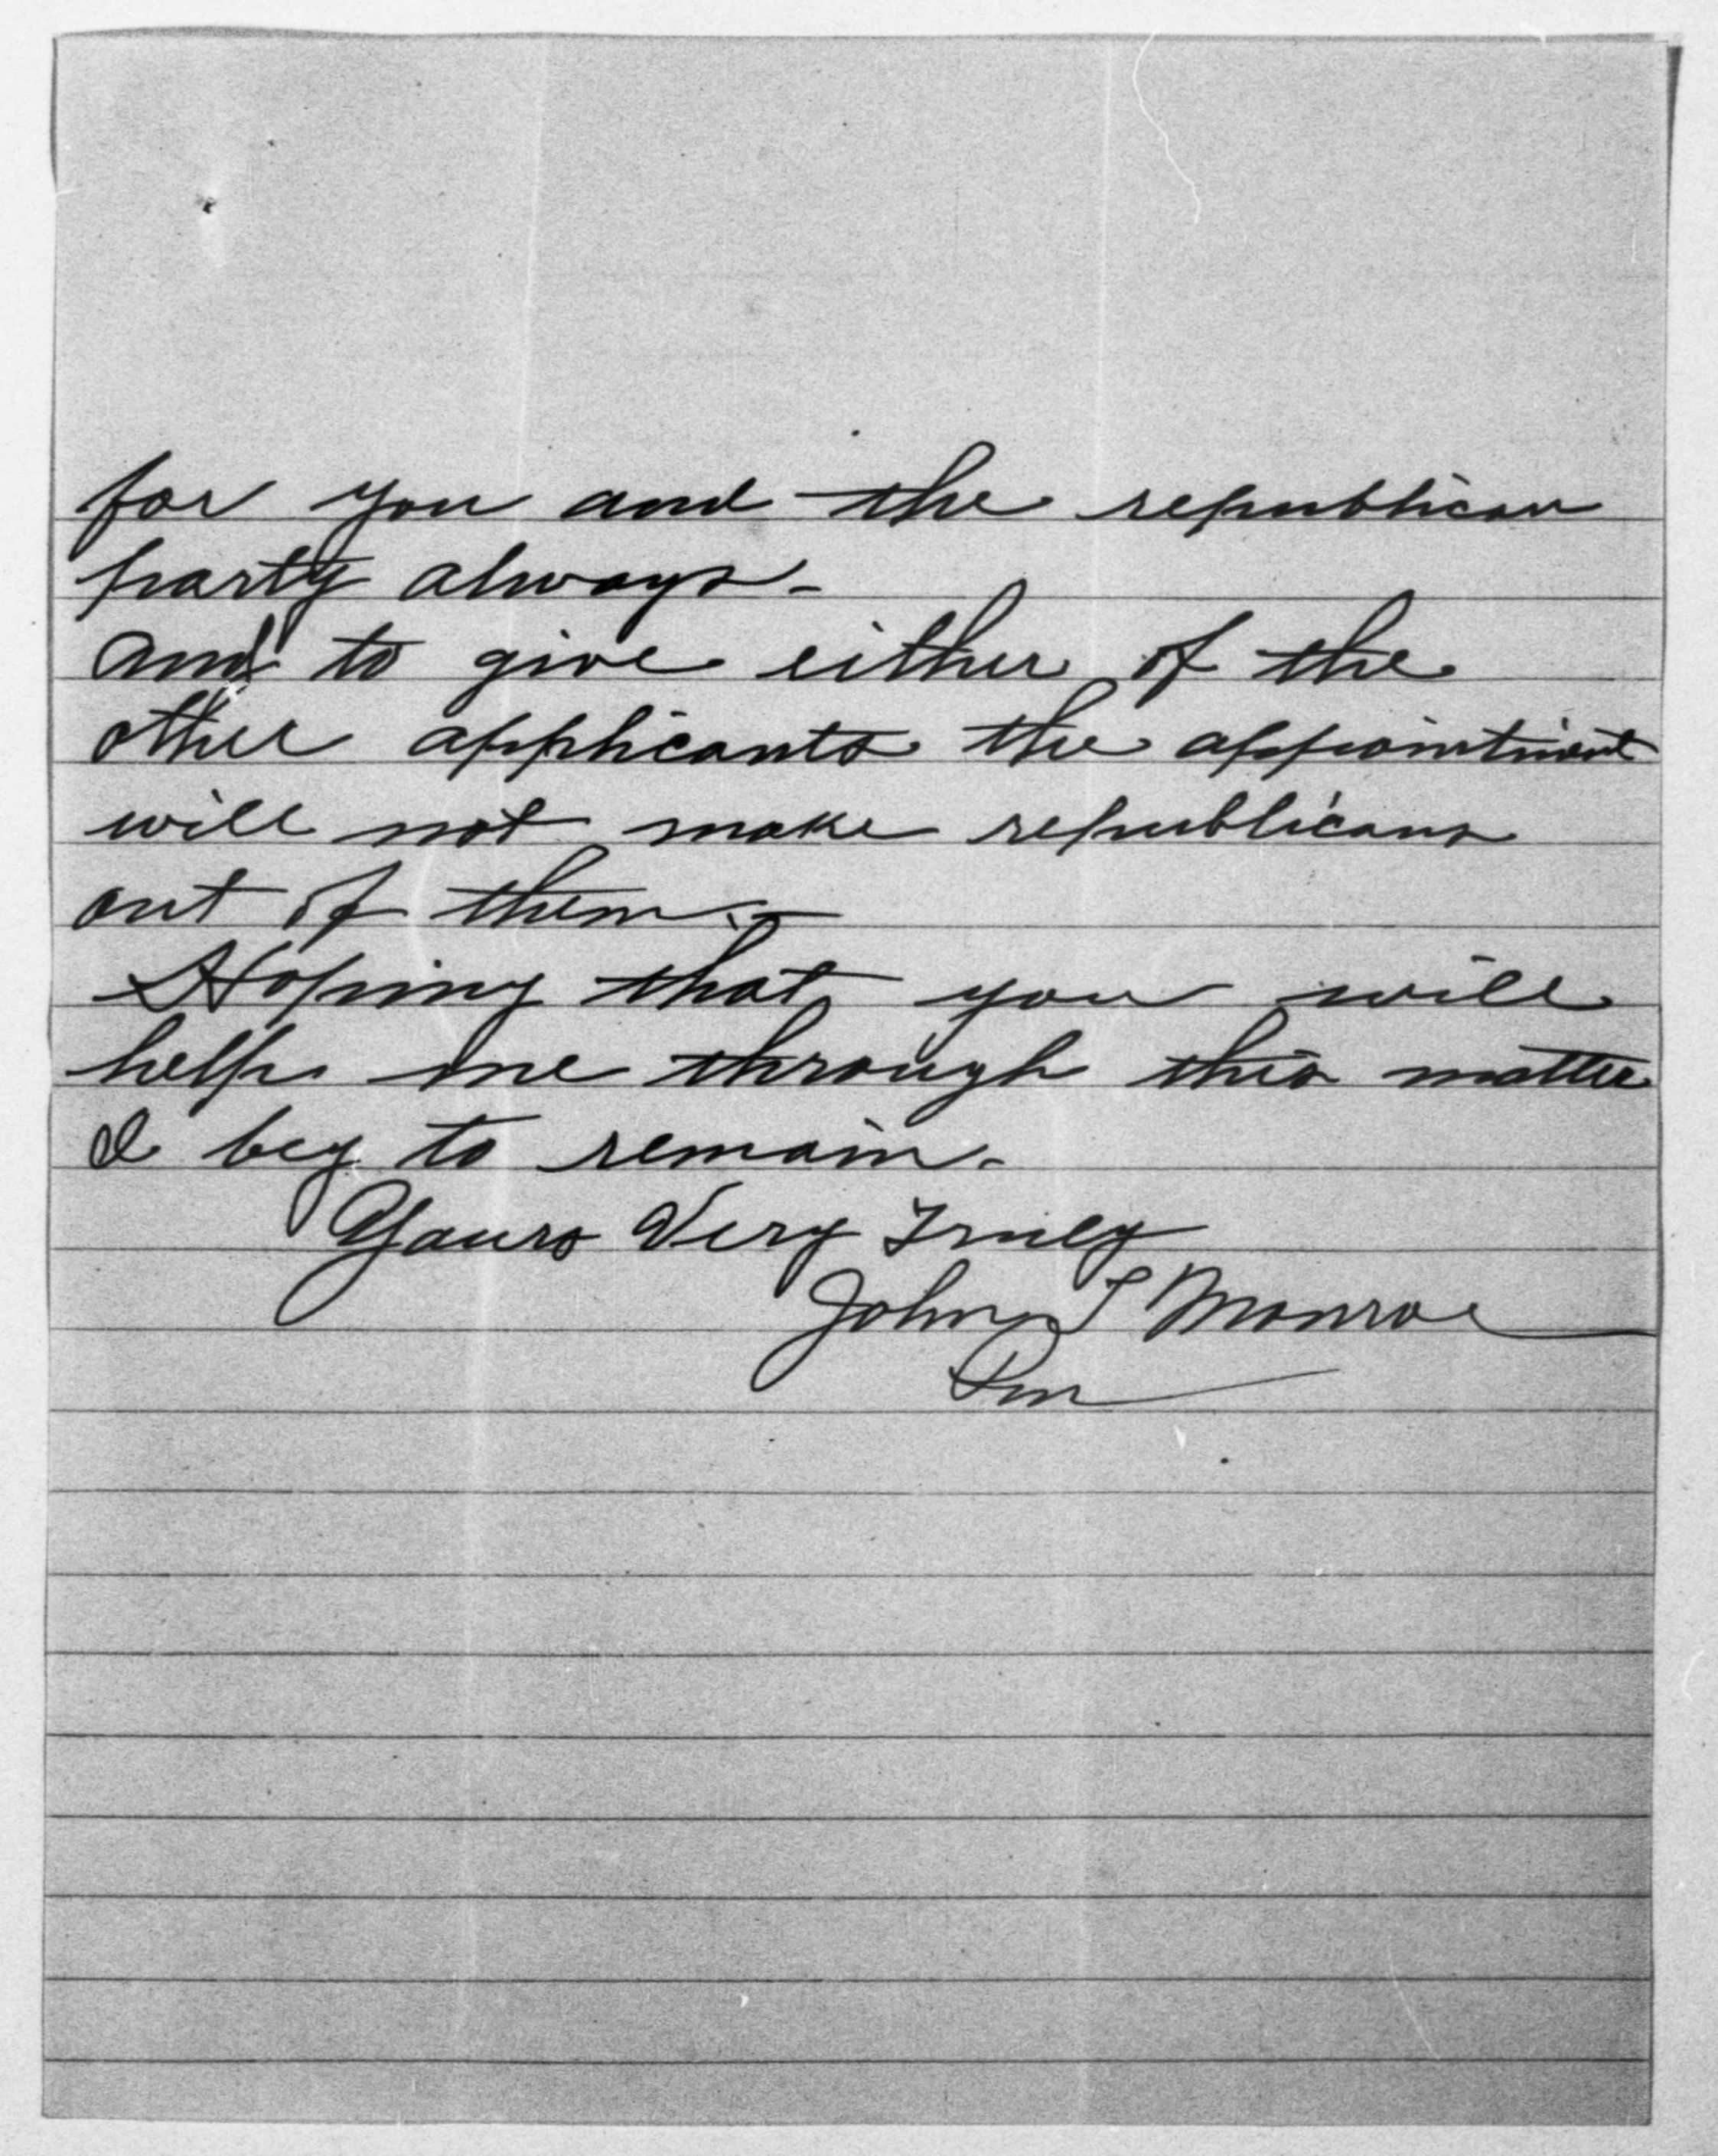 for you and the republican
party always-
and to give either of the
other applicants the appointment
will not make republicans
out of them.-
Hoping that you will
help me through this matter
I beg to remain.-
Yours Very Truly
John T Monroe
Pm